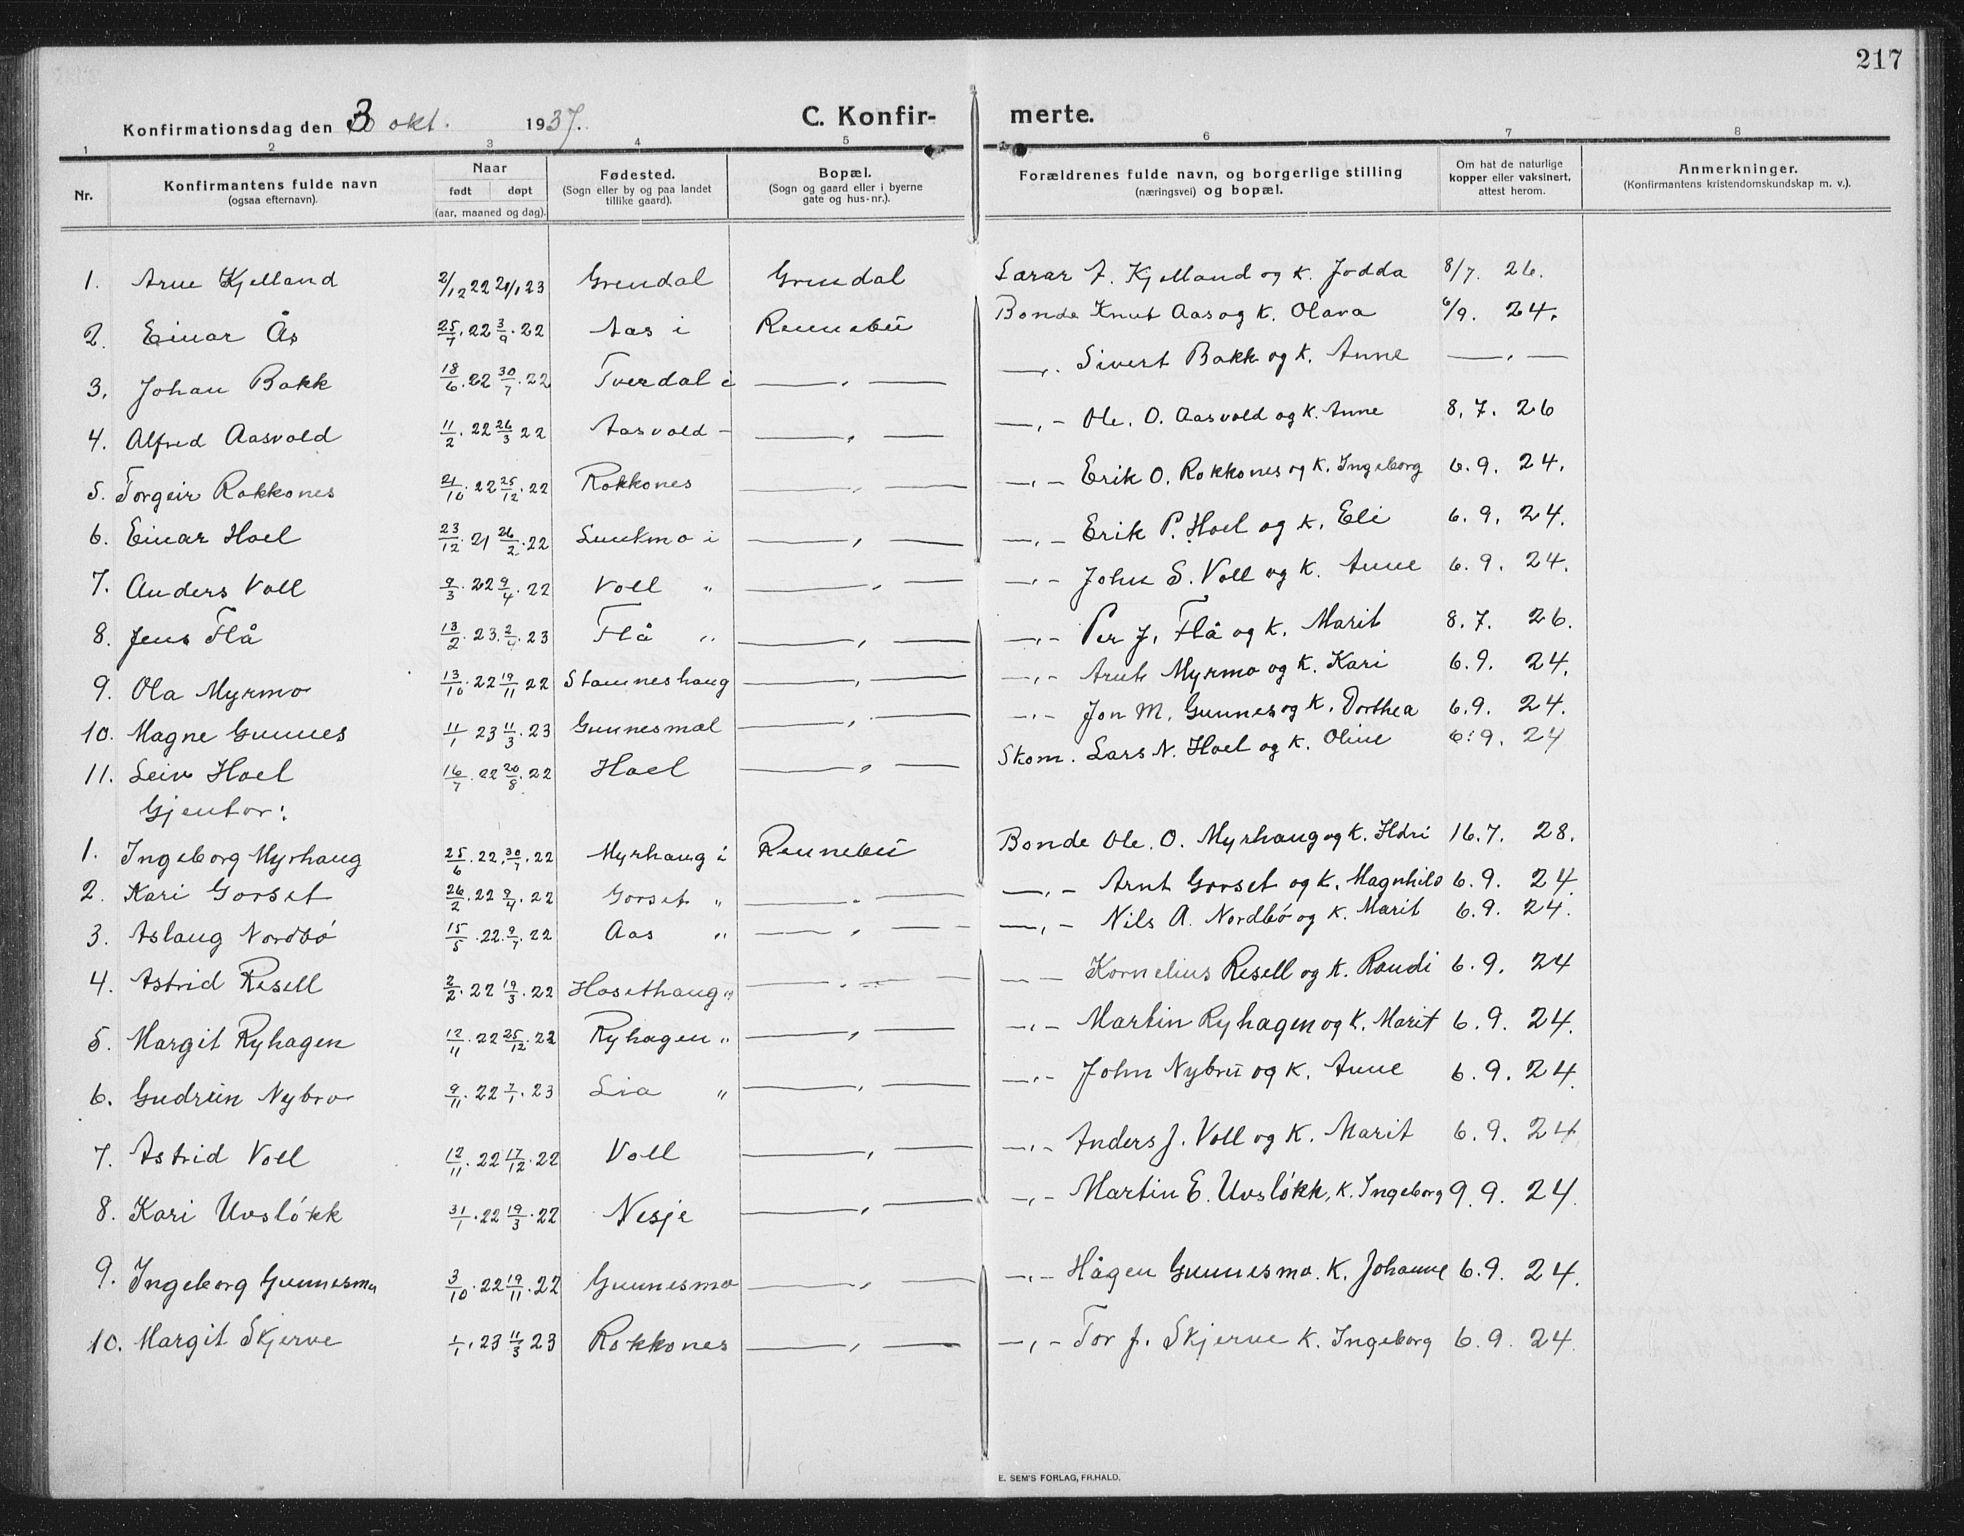 217
Konfirmationsdag den 3 okt. 1937.
C. Konfirmerte.
1 2 3 4 5 6 7 8
Nr.
Konfirmantens fulde navn
(ogsaa efternavn).
Naar
født døpt
(aar, maaned og dag).
Fødested.
(Sogn eller by og paa landet
tillike gaard).
Bopæl.
(Sogn og gaard eller i byerne
gate og hus-nr.).
Forældrenes fulde navn, og borgerlige stilling
(næringsvei) og bopæl.
Om hat de naturlige
kopper eller vaksinert,
attest herom.
Anmerkninger.
(Konfirmantens kristendomskundskap m. v.).
1. Arne Kjelland 2/12 22 21/1 23 Grendal Grendal Lærar A. Kjelland og K. Jodda 8/7. 26.
2. Einar Ås 25/7. 22 3/9. 22 Aas i Rennebu Bonde Knut Aas og K. Olava 6/9. 24.
3. Johan Bakk 18/6. 22 30/7. 22 Tverdal i —,— —,. Sivert Bakk og K. Anne —,—
4. Alfred Aasvold 11/2. 22 26/3 22 Aasvold - —,— —,- Ole. O. Aasvold og K. Anne 8. 7. 26
5. Torgeir Rokkones 21/10. 22 25/12. 22 Rokkones —,— —,- Erik O. Rokkones og K. Ingeborg 6. 9. 24.
6. Einar Hoel 23/12. 21 26/2. 22 Luukmo i —,— —,- Erik P. Hoel og K. Eli 6. 9. 24.
7. Anders Voll 9/3. 22 9/4. 22 Voll " —,— —,- John S. Voll og K. Anne 6. 9. 24.
8. Jens Flå 13/2. 23. 2/4. 23 Flå " —,— —,- Per J. Flå og K. Marit 8. 7. 26.
9. Ola Myrmo 13/10. 22 19/11 22 Stamneshaug —,— —,- Arnt Myrmo og K. Kari 6. 9. 24.
10. Magne Gunnes 11/1 23 11/3. 23 Gunnesmal —,— —,- Jon M. Gunnes og K. Dorthea 6. 9. 24.
11. Leiv Hoel 16/7. 22 20/8. 22 Hoel —,— Skom. Lars N. Hoel og K. Oline 6. 9. 24
Gjentor:
1. Ingeborg Myrhaug 25/6. 22. 30/7. 22 Myrhaug i Rennebu Bonde Ole. O. Myrhaug og K. Ildri 16. 7. 28.
2. Kari Gorset 26/2. 22 9/4. 22 Gorset " —,— —,- Arnt Gorset og K. Magnhild 6. 9. 24.
3. Aslaug Nordbø 15/5. 22. 9/7. 22 Aas " —,— —,- Nils A. Nordbø og K. Marit 6. 9. 24.
4. Astrid Resell 2/2. 22 19/3. 22 Hosethaug " —,— — — Kornelius Resell og K. Randi 6. 9. 24
5. Margit Ryhagen 12/11. 22 25/12. 22 Ryhagen " —,— —,- Martin Ryhagen og K. Marit 6. 9. 24.
6. Gudrun Nybro 9/11. 22 7/1. 23 Lia " —,— —,- John Nybru og K. Anne 6. 9. 24.
7. Astrid Voll 12/11. 22 17/12. 22 Voll —,— —,- Anders J. Voll og K. Marit 6. 9. 24.
8. Kari Uvsløkk 31/1. 22 19/3. 22 Nesje —,— —,- Martin E. Uvsløkk, K. Ingeborg 9. 9. 24.
9. Ingeborg Gunnesmo 3/10. 22 19/11. 22 Gunnesmo —,— —,- Hågen Gunnesmo. K. Johanne 6. 9. 24.
10. Margit Skjerve 1/1. 23 11/3 23 Rokkones —,— —,- Tor J. Skjerve K. Ingeborg 6. 9. 24.
E. SEM'S FORLAG, FR.HALD.